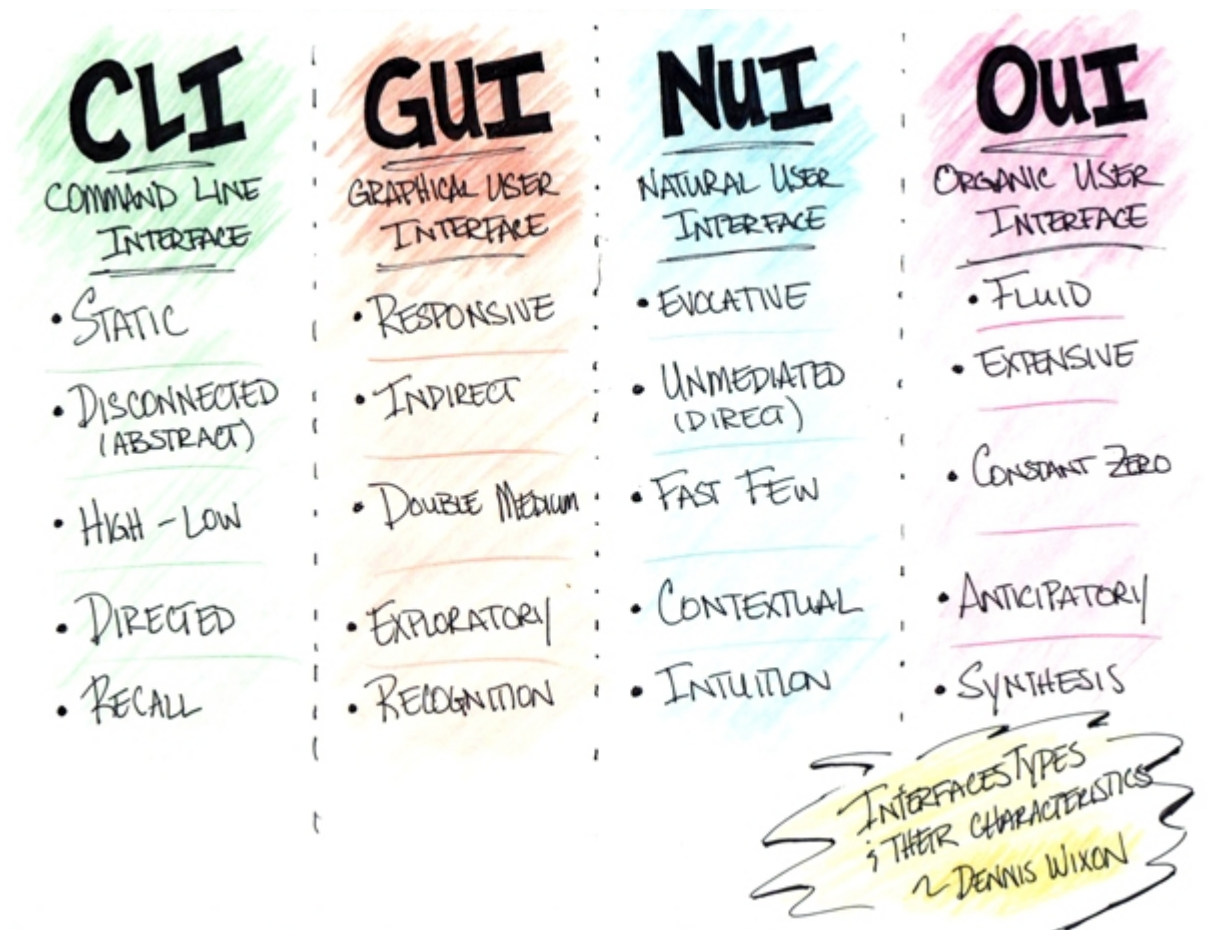 CLI
COMMAND LINE
INTERFACE
• STATIC
• DISCONNECTED
(ABSTRACT)
• HIGH - LOW
• DIRECTED
• RECALL
GUI
GRAPHICAL USER
INTERFACE
• RESPONSIVE
• INDIRECT
• DOUBLE MEDIUM
• EXPLORATORY
• RECOGNITION
NUI
NATURAL USER
INTERFACE
• EVOCATIVE
• UNMEDIATED
(DIRECT)
• FAST FEW
• CONTEXTUAL
• INTUITION
OUI
ORGANIC USER
INTERFACE
• FLUID
• EXTENSIVE
• CONSTANT ZERO
• ANTICIPATORY
• SYNTHESIS
INTERFACES TYPES
& THEIR CHARACTERISTICS
~ DENNIS WIXON